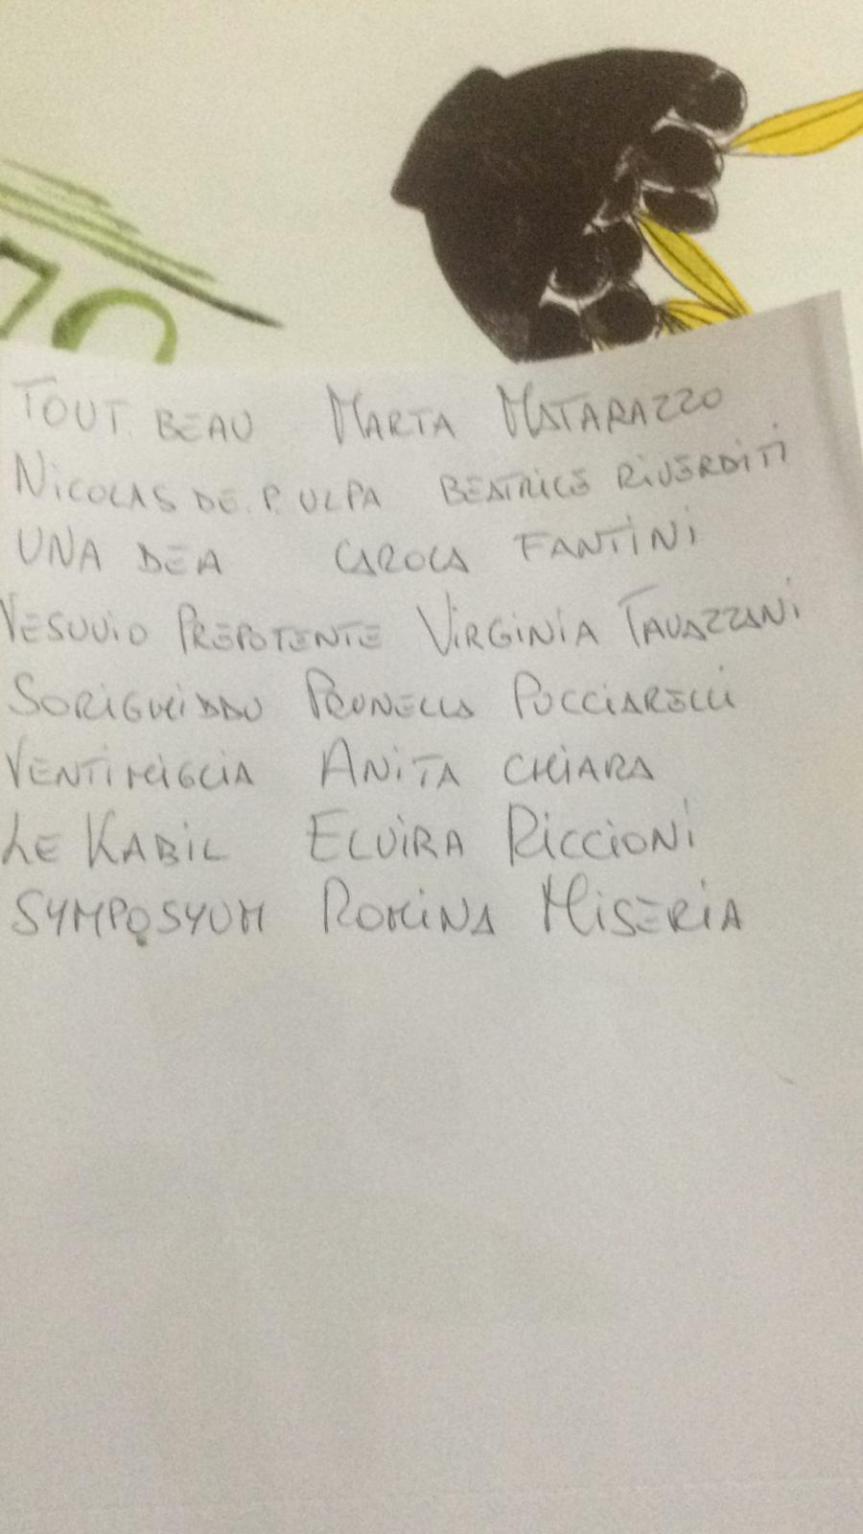 TOUT BEAU MARTA MATARAZZO
NICOLAS DE P. ULPA BEATRICE RIVERDITI
UNA DEA CAROLA FANTINI
VESUVIO PREPOTENTE VIRGINIA TAVAZZANI
PRUNELLA PUCCIARELLI
VENTIMIGLIA ANITA CHIARA
LE KABIL ELVIRA RICCIONI
SYMPOSYUM ROMINA MISERIA